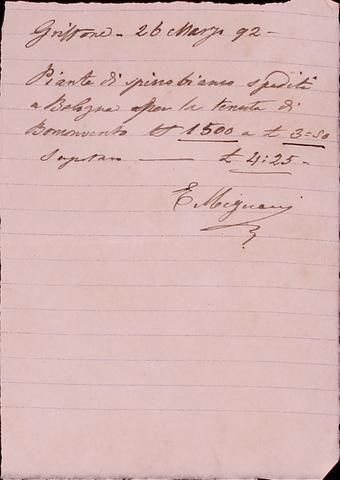 Grittone - 26 Marzo 92 -
Piante di spinobianco spedite
a Bologna per la tenuta di
Bonconvento 1500 a £ 3=50
£ 4:25 -
E Mignani